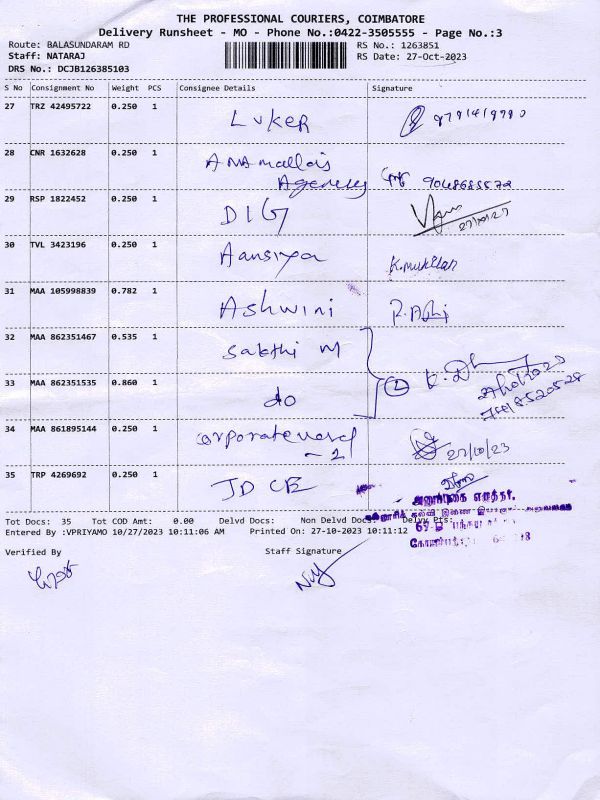 THE PROFESSIONAL COURIERS, COIMBATORE
Delivery Runsheet - MO - Phone No.:0422-3505555 - Page No.:3
Route: BALASUNDARAM RD
RS No.: 1263851
Staff: NATARAJ
RS Date: 27-Oct-2023
DRS No.: DCJB126385103
S No Consignment No Weight PCS Consignee Details Signature
27 TRZ 42495722 0.250 1 LUKER
28 CNR 1632628 0.250 1 Agencies
29 RSP 1822452 0.250 1 DIG 27/10/23
30 TVL 3423196 0.250 1
31 MAA 105998839 0.782 1 Ashwini
32 MAA 862351467 0.535 1 Sakthi M
33 MAA 862351535 0.860 1 do 2
34 MAA 861895144 0.250 1 27/10/23
35 TRP 4269692 0.250 1 JD CE
Tot Docs: 35 Tot COD Amt: 0.00 Delvd Docs: Non Delvd Docs: Delvy Pts:
Entered By :VPRIYAMO 10/27/2023 10:11:06 AM Printed On: 27-10-2023 10:11:12
Verified By Staff Signature